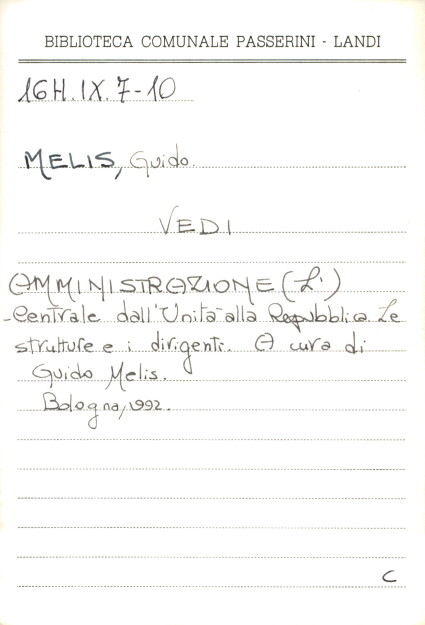 BIBLIOTECA COMUNALE PASSERINI - LANDI
16H.IX.7-10
MELIS, Guido.
VEDI
AMMINISTRAZIONE (L')
Centrale dall'Unità alla Repubblica. Le
strutture e i dirigenti. A cura di
Guido Melis.
Bologna, 1992.
C